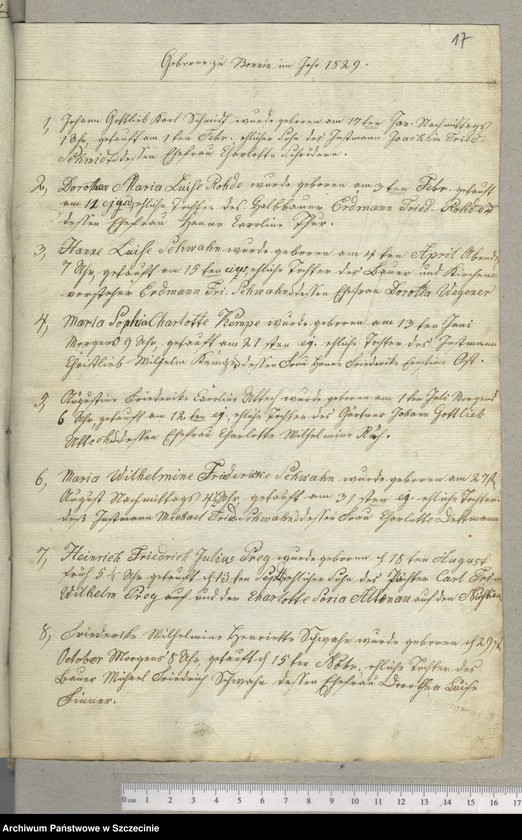 17
Geborne zu Borrin im Jahr 1829.
1, Johann Gottlieb Karl Schmidt wurde geboren am 17ten Jan. Nachmittags
1 Uhr, getauft am 1ten Febr. ehlicher Sohn des Instmann Joachim Fried.
Schmidt, dessen Ehefrau Charlotte
2, Dorothea Maria Luise Rohde wurde geboren am 3ten Febr. getauft
am 12 ej. ehliche Tochter des Halbbauer Erdmann Fried. Rohde u.
dessen Ehefrau Hanne Caroline
3, Hanne Luise Schwahn wurde geboren am ten April Abends
7 Uhr, getauft am 15ten ej. ehliche Tochter des Bauer und Kirchen
vorsteher Erdmann Fri. Schwahn u. dessen Ehefrau Dorothea Wegener
4, Maria Sophia Charlotte Kempe wurde geboren am 13ten Juni
Morgens 9 Uhr, getauft am 21sten ej. ehliche Tochter des Instmann
Christlieb Wilhelm Kempe u. dessen Frau Hanne Friederike Ernstine
5, Augustine Friederike Caroline Uttech wurde geboren am 1ten Juli Morgens
6 Uhr, getauft am 12ten ej. ehliche Tochter des Gärtner Johann Gottlieb
Uttech u. dessen Ehefrau Charlotte Wilhelmine
6, Maria Wilhelmine Friedericke Schwahn wurde geboren am 27st
August Nachmittags 4 Uhr, getauft am 31sten ej. ehliche Tochter
des Instmann Michael Fried. Schwahn u. dessen Frau Charlotte Dettmann
7, Heinrich Friedrich Julius wurde geboren d 18ten August
früh 5 Uhr getauft d 13ten Sept. ehlicher Sohn des Pächter Carl
Wilhelm auf und der Charlotte auf den
8, Friedericke Wilhelmine Henriette Schwahn wurde geboren d 29st
October Morgens 8 Uhr, getauft d 15ten Nbr. ehliche Tochter des
Bauer Michael Friedrich Schwahn dessen Ehefrau Dorothea Luise
0 cm 1 2 3 4 5 6 7 8 9 10 11 12 13 14 15 16 17
Archiwum Państwowe w Szczecinie